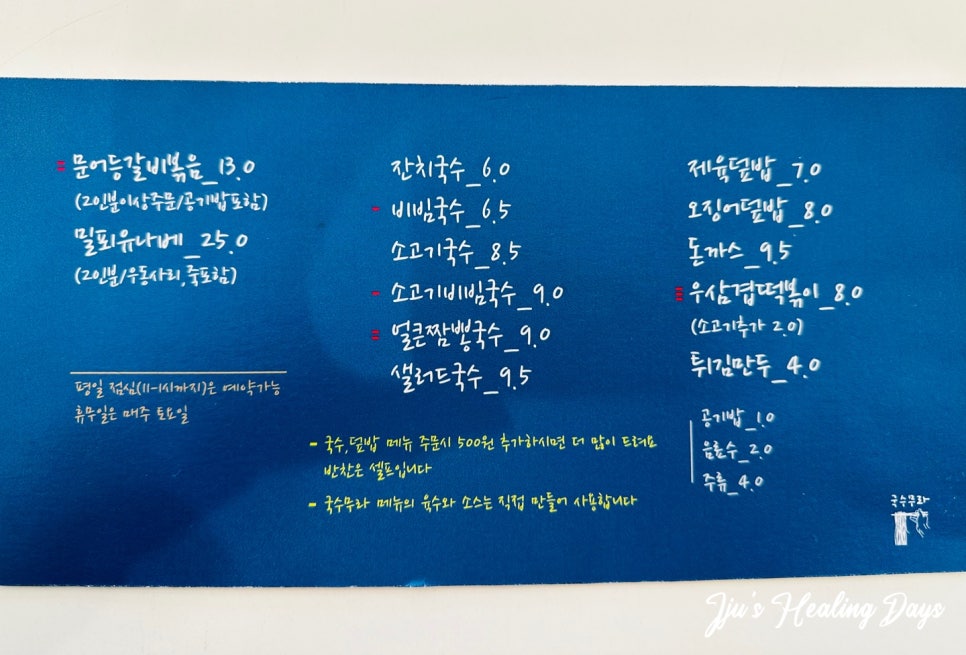 문어등갈비볶음_13.0
(2인분이상주문/공기밥포함)
밀푀유나베_25.0
(2인분/우동사리,죽포함)
평일 점심(11-1시까지)은 예약가능
휴무일은 매주 토요일
잔치국수_6.0
비빔국수_6.5
소고기국수_8.5
소고기비빔국수_9.0
얼큰짬뽕국수_9.0
샐러드국수_9.5
제육덮밥_7.0
오징어덮밥_8.0
돈까스_9.5
우삼겹떡볶이_8.0
(소고기추가 2.0)
튀김만두_4.0
공기밥_1.0
음료수_2.0
주류_4.0
- 국수,덮밥 메뉴 주문시 500원 추가하시면 더 많이 드려요
반찬은 셀프입니다
- 국수무라 메뉴의 육수와 소스는 직접 만들어 사용합니다
국수무라
Jju's Healing Days